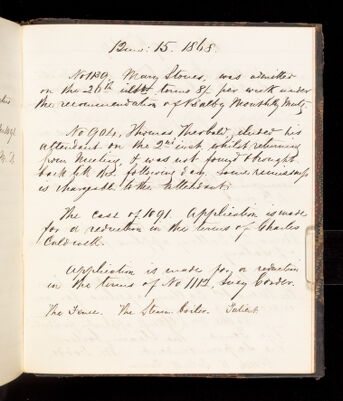 12 mo: 15. 1868.
No 1130, Mary Stones, was admitted
on the 26th ult. terms 8/ per week under
the recommendation of Monthly Meetg
No 904, Thomas Theobald, eluded his
attendant on the 2nd inst. whilst returning
from Meeting, & was not found & brought
back till the following day, some
is chargeable to the attendant.
The case of 1091. Application is made
for a reduction in the terms of Charles
Caldwell.
Application is made for a reduction
in the terms of No 1112, Lucy Corder.
The Fence. The Steam boiler. Patient